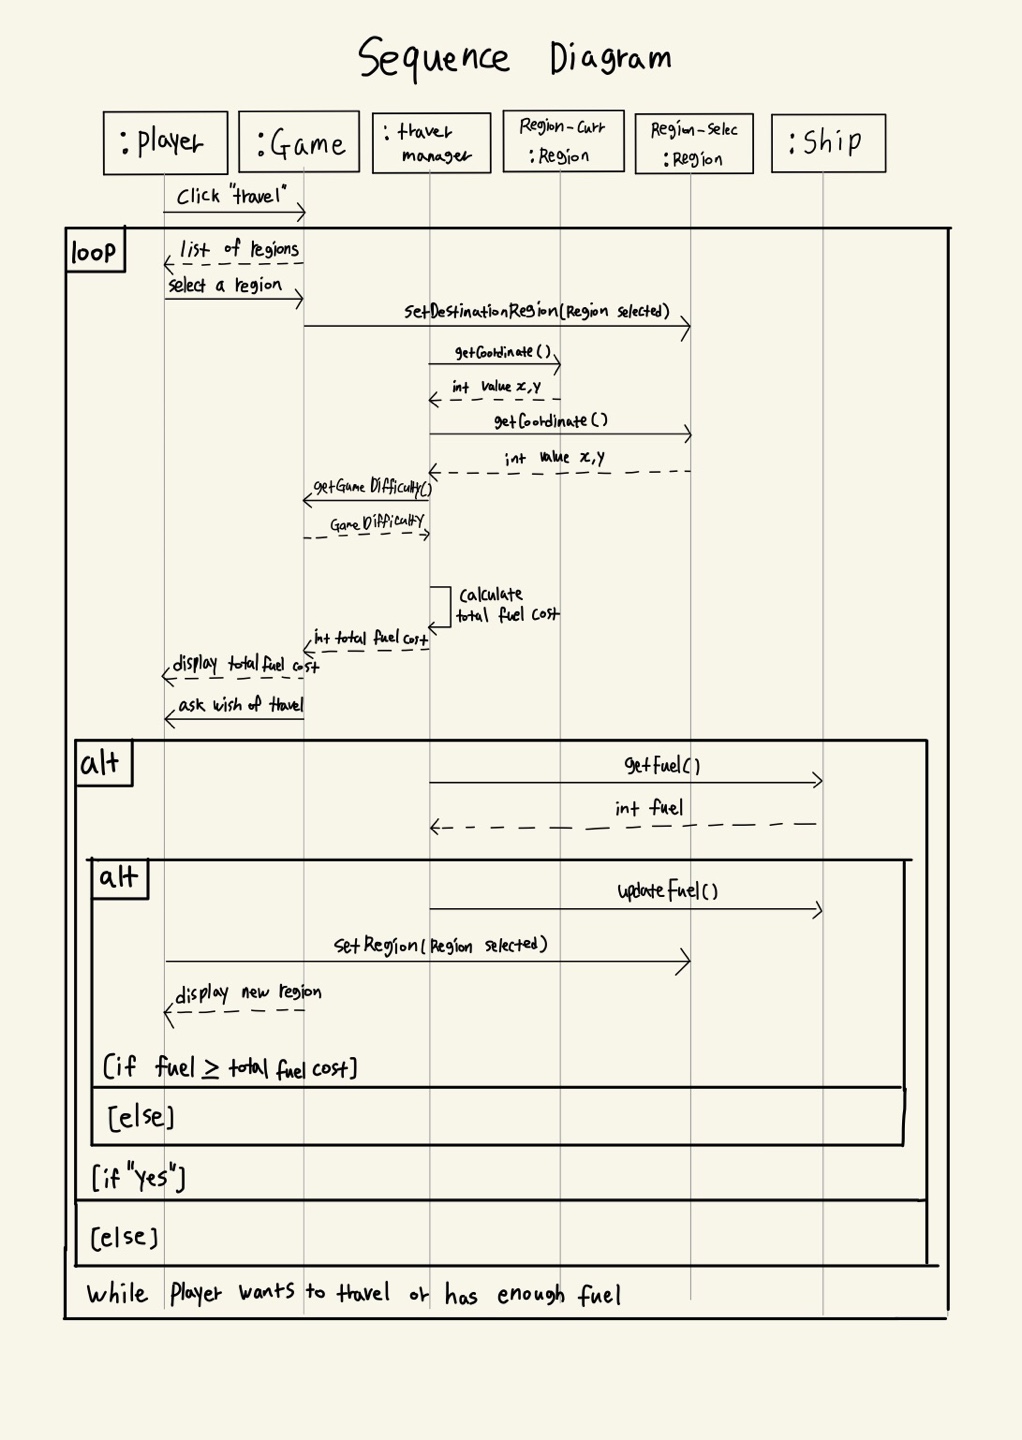 Sequence Diagram
:player
:Game
:traver
manager
Region-Curr
:Region
Region-Selec
:Region
:Ship
Click "travel"
loop
list of regions
select a region
setDestinationRegion(Region selected)
getCoordinate()
int value x,y
getCoordinate()
int value x,y
getGameDifficulty()
GameDifficulty
calculate
total fuel cost
int total fuel cost
display total fuel cost
ask wish of travel
alt
getFuel()
int fuel
alt
updateFuel()
setRegion(Region selected)
display new region
[if fuel ≥ total fuel cost]
[else]
[if "yes"]
[else]
while player wants to travel or has enough fuel